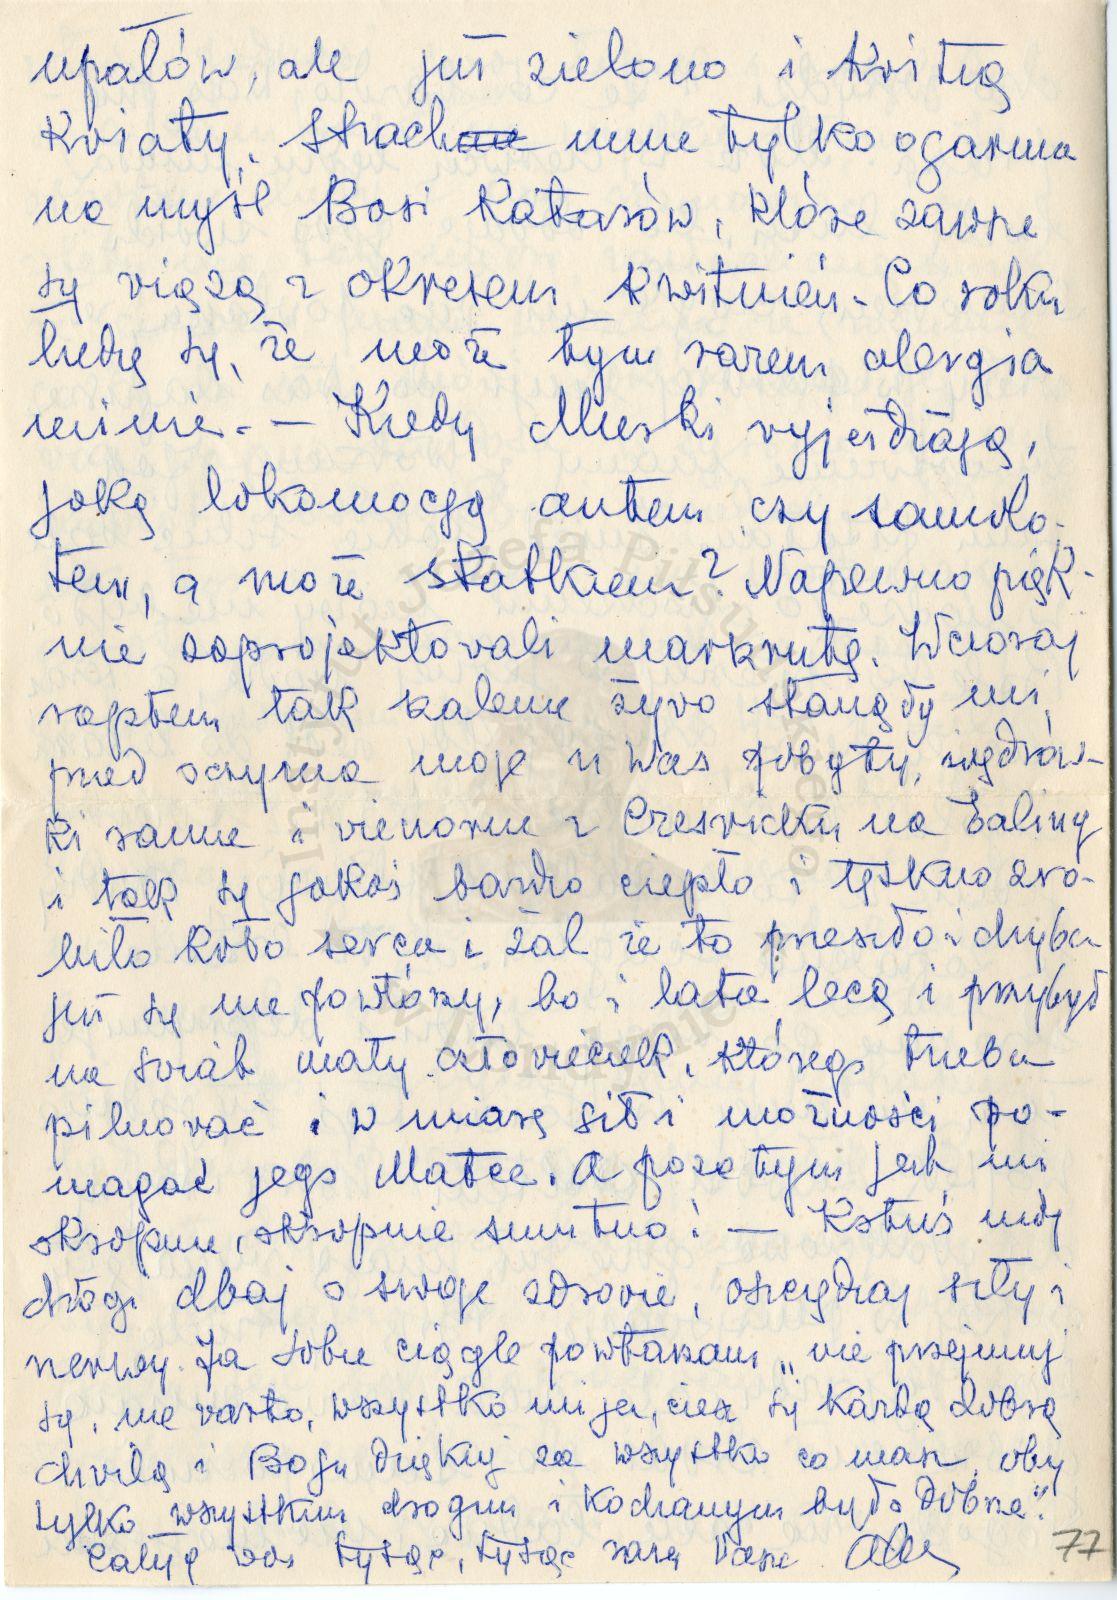 upałów, ale już zielono i kwitną
kwiaty. Strach mnie tylko ogarnia
na myśl Basi Katarów, które zawsze
się wiążą z okresem kwitnień. Co roku
łudzę się, że może tym razem alergia
minie. — Kiedy wyjeżdżają,
jaką lokomocją autem czy samolo-
tem, a może statkiem? Napewno pięk-
nie zaprojektowali markrutę. Wczoraj
raptem tak szalenie żywo stanęły mi
przed oczyma moje u Was pobyty, wędrów-
ki ranne i wieczorne z na Ealing
i tak się jakoś bardzo ciepło i tęskno zro-
biło koło serca i żal że to przeszło i chyba
już się nie powtórzy, bo i lata lecą i przybył
na świat mały człowieczek, którego trzeba
pilnować i w miarę sił i możności po-
magać jego Matce. A poza tym jak mi
okropnie, okropnie smutno! — mój
drogi dbaj o swoje zdrowie, oszczędzaj siły i
nerwy. Ja sobie ciągle powtarzam „nie przejmuj
się, nie warto, wszystko mija, ciesz się każdą dobrą
chwilą i Bogu dziękuj za wszystko co masz, oby
tylko wszystkim drogim i kochanym było dobrze."
Całuję was tysiąc, tysiąc razy Wasza
77
Instytut Józefa Piłsudskiego
w Londynie